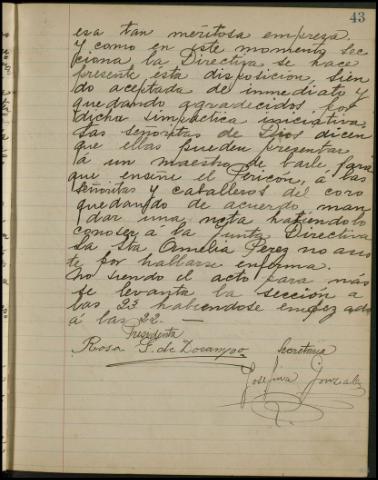 43
esa tan méritosa empreza.
Y como en este momento sec
ciona la Directiva se hace
presente ésta disposición, sien
do aceptada de inmediato y
quedando agradecidos por
dicha simpactica iniciativa.
Las señoritas de Dios dicen
que ellas pueden presentar
á un maestro de baile para
que enseñe el Pericón, á las
señoitas y caballeros del coro
quedando de acuerdo man
dar una nota haciendolo
conoser á la Junta Directiva
La Sta Amelia Perez no asis
te por hallarse enferma.
No siendo el acto para más
se levanta la sección a
las 23 habiendose empezado
á las 22. —
Presidenta
Rosa F. de Docampo Secretaria
Josefina Gonzalez